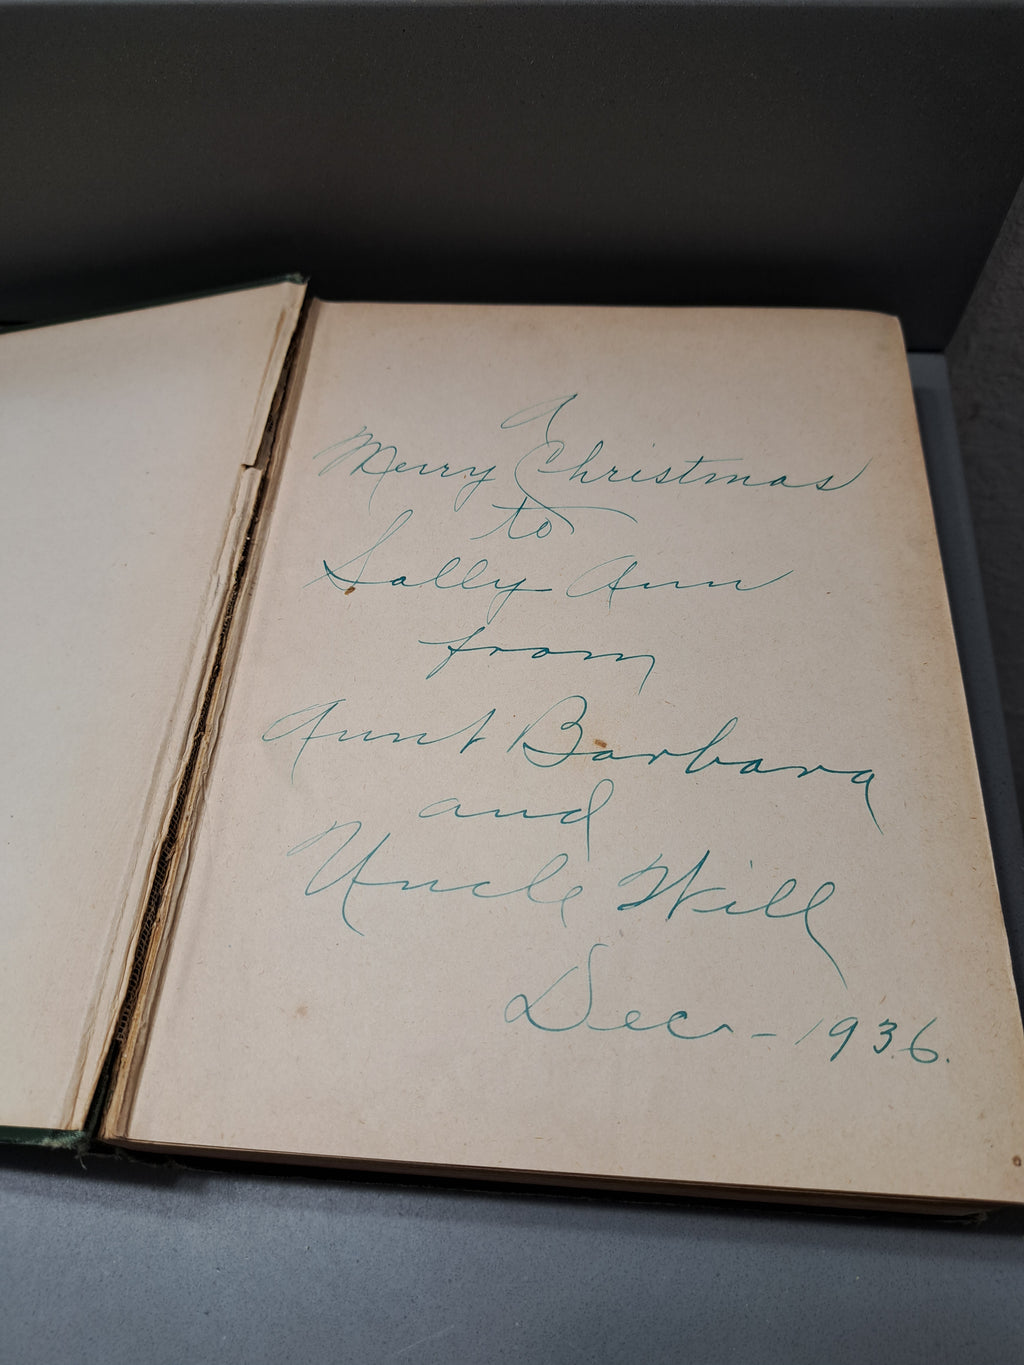 A
Merry Christmas
to
Sally Ann
from
Aunt Barbara
and
Uncle Will
Dec - 1936.